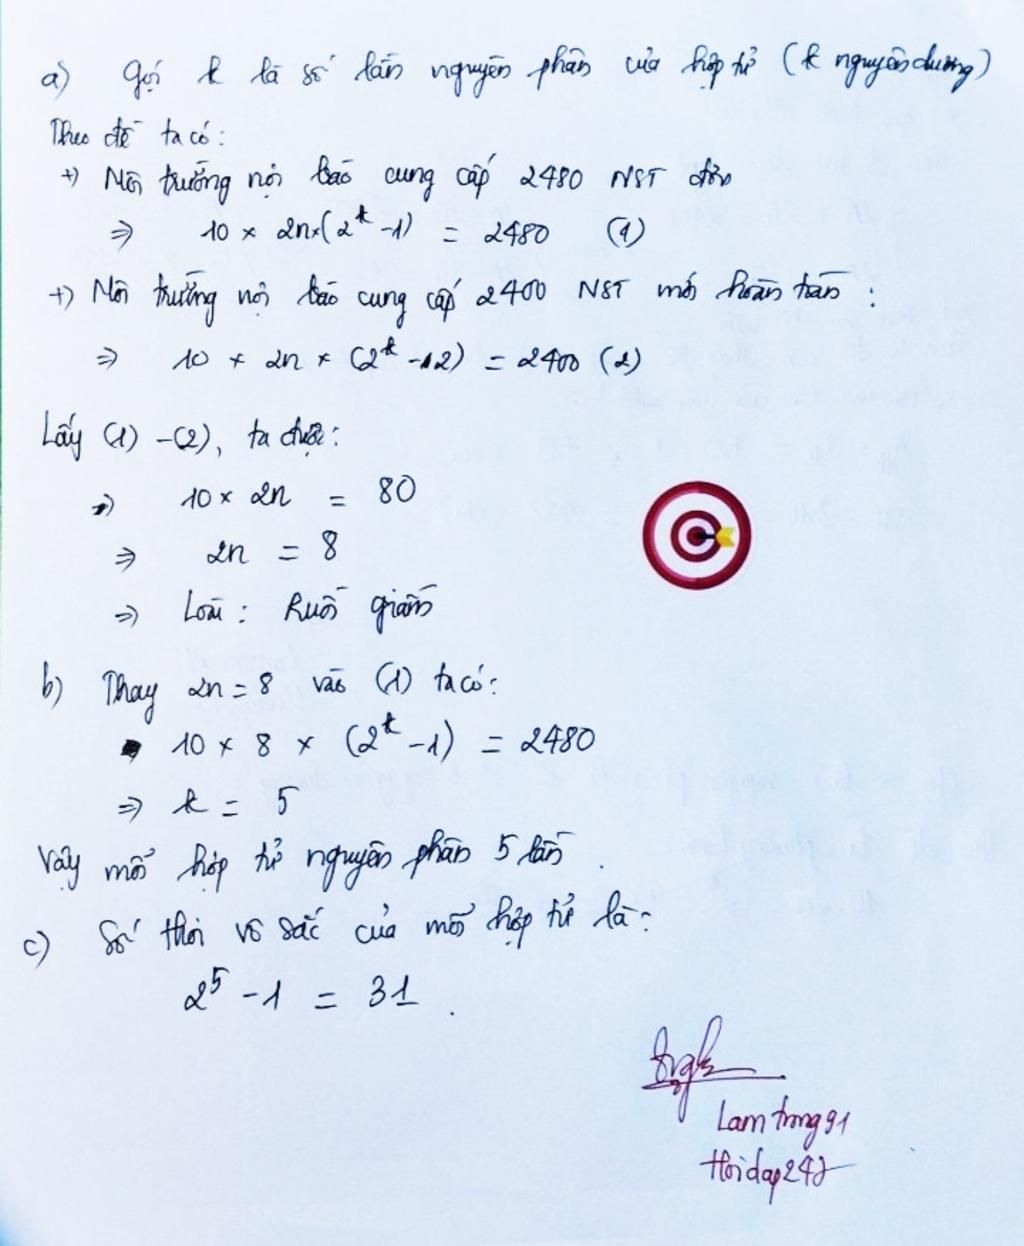 a) Gọi k là số lần nguyên phân của hợp tử (k nguyên dương)
Theo đề ta có:
+) Môi trường nội bào cung cấp 2480 NST đơn
⇒ 10 × 2n × (2^k - 1) = 2480 (1)
+) Môi trường nội bào cung cấp 2400 NST mới hoàn toàn:
⇒ 10 × 2n × (2^k - 2) = 2400 (2)
Lấy (1) - (2), ta được:
⇒ 10 × 2n = 80
⇒ 2n = 8
⇒ Loài: Ruồi giấm
b) Thay 2n = 8 vào (1) ta có:
10 × 8 × (2^k - 1) = 2480
⇒ k = 5
Vậy mỗi hợp tử nguyên phân 5 lần.
c) Số thoi vô sắc của mỗi hợp tử là:
2^5 - 1 = 31.
Lamtrong91
Hoidap247